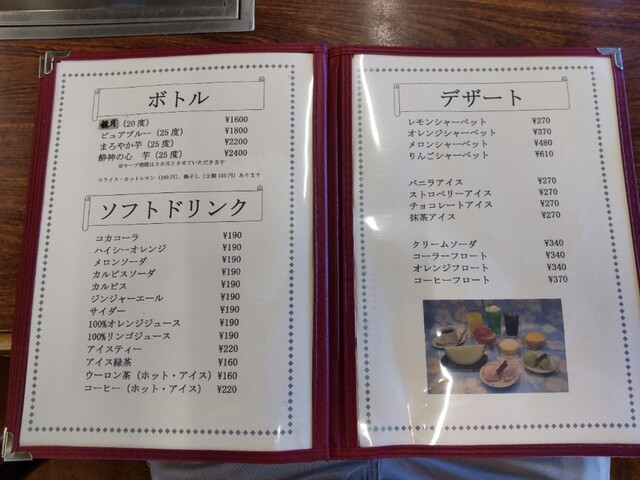 ボトル
(20度) ¥1600
ピュアブルー (25度) ¥1800
まろやか芋 (25度) ¥2200
酔神の心 芋 (25度) ¥2400
※キープ期間は3カ月とさせていただきます
スライス・カットレモン (100円)、梅干し (2個150円) あります
ソフトドリンク
コカコーラ ¥190
ハイシーオレンジ ¥190
メロンソーダ ¥190
カルピスソーダ ¥190
カルピス ¥190
ジンジャーエール ¥190
サイダー ¥190
100%オレンジジュース ¥190
100%リンゴジュース ¥190
アイスティー ¥220
アイス緑茶 ¥160
ウーロン茶 (ホット・アイス) ¥160
コーヒー (ホット・アイス) ¥220
デザート
レモンシャーベット ¥270
オレンジシャーベット ¥370
メロンシャーベット ¥480
りんごシャーベット ¥610
バニラアイス ¥270
ストロベリーアイス ¥270
チョコレートアイス ¥270
抹茶アイス ¥270
クリームソーダ ¥340
コーラーフロート ¥340
オレンジフロート ¥340
コーヒーフロート ¥370